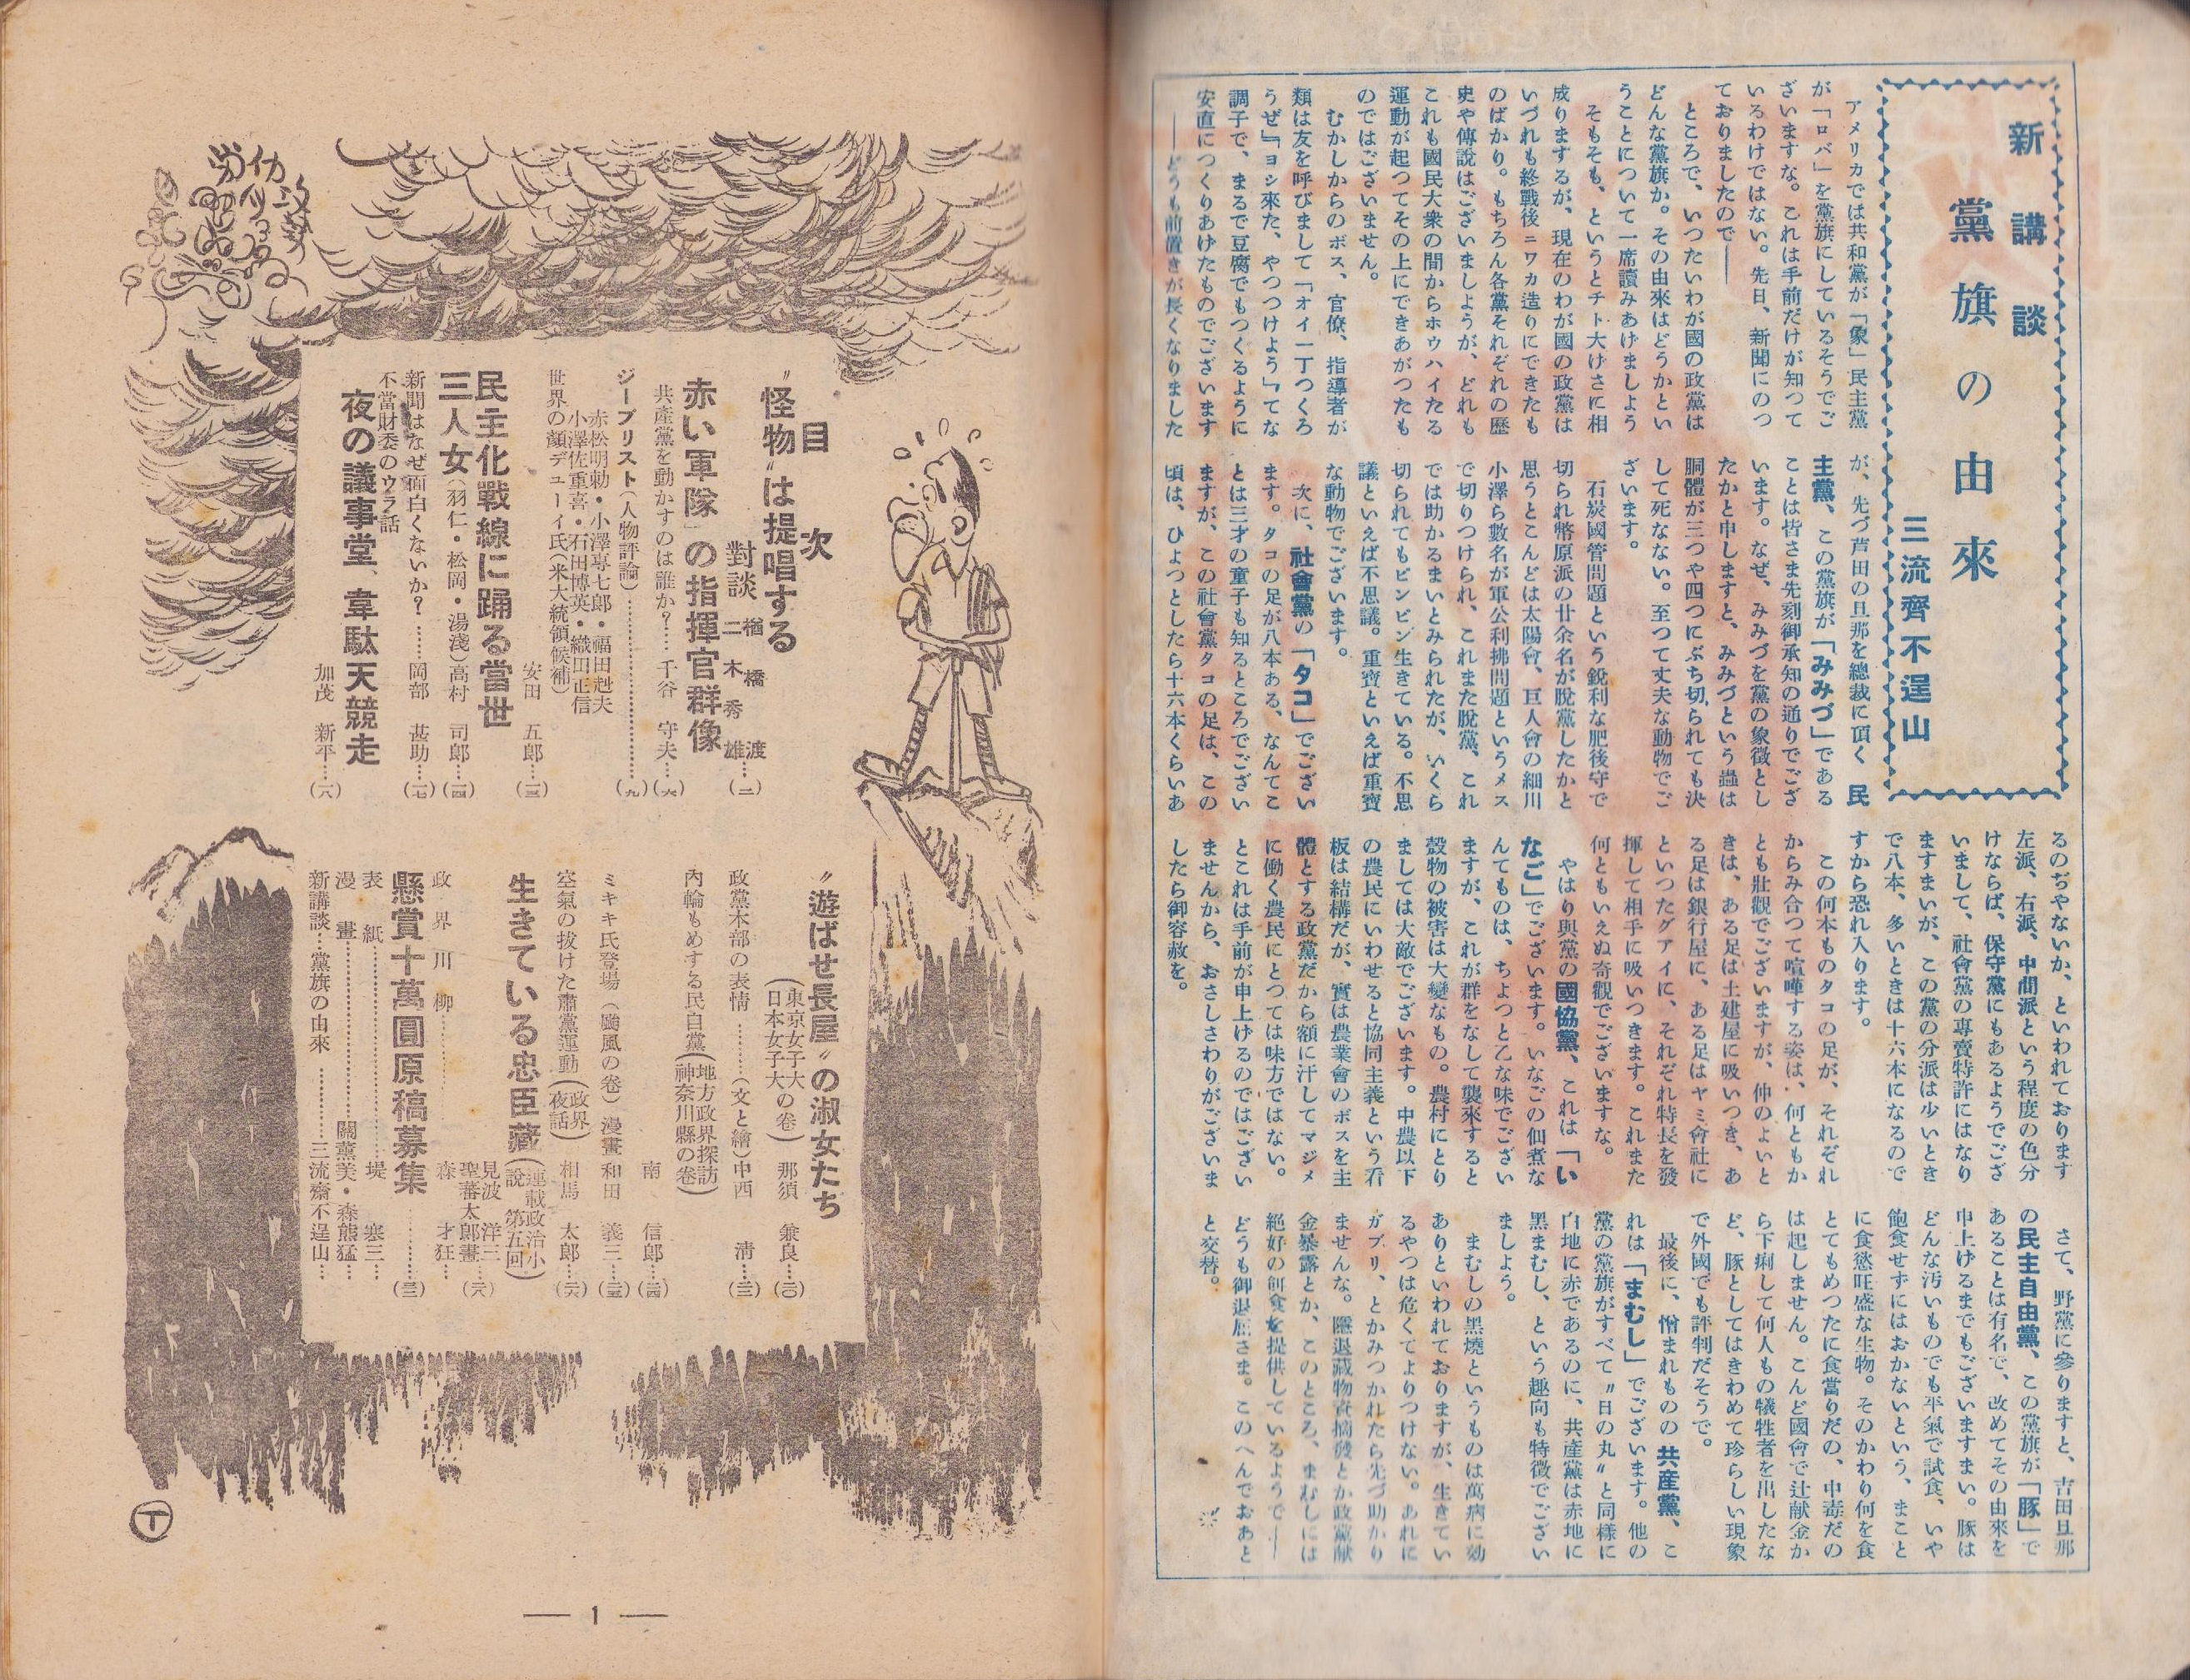 新講談
黨旗の由來
三流齊不逞山
アメリカでは共和黨が「象」民主黨
が「ロバ」を黨旗にしているそうでご
ざいますな。これは手前だけが知つて
いるわけではない。先日、新聞にのつ
ておりましたので――
ところで、いつたいわが國の政黨は
どんな黨旗か。その由來はどうかとい
うことについて一席讀みあげましよう
そもそも、というとチト大げさに相
成りますが、現在のわが國の政黨は
いづれも終戰後ニワカ造りにできたも
のばかり。もちろん各黨それぞれの歷
史や傳說はございましようが、どれも
これも國民大衆の間からホウハイたる
運動が起つてその上にできあがつたも
のではございません。
むかしからのボス、官僚、指導者が
類は友を呼びまして「オイ一丁つくろ
うぜ」「ヨシ來た、やつつけよう」てな
調子で、まるで豆腐でもつくるように
安直につくりあげたものでございます
――どうも前置きが長くなりました
が、先づ芦田の旦那を總裁に頂く民
主黨、この黨旗が「みみづ」である
ことは皆さま先刻御承知の通りでござ
います。なぜ、みみづを黨の象徵とし
たかと申しますと、みみづという蟲は
胴體が三つや四つにぶち切られても決
して死なない。至つて丈夫な動物でご
ざいます。
石炭國管問題という銳利な肥後守で
切られ幣原派の廿余名が脫黨したかと
思うとこんどは太陽會、巨人會の細川
小澤ら數名が軍公利拂問題というメス
で切りつけられ、これまた脫黨、これ
では助かるまいとみられたが、いくら
切られてもピンピン生きている。不思
議といえば不思議。重寶といえば重寶
な動物でございます。
次に、社會黨の「タコ」でござい
ます。タコの足が八本ある、なんてこ
とは三才の童子も知るところでござい
ますが、この社會黨タコの足は、この
頃は、ひよつとしたら十六本くらいあ
るのぢやないか、といわれております
左派、右派、中間派という程度の色分
けならば、保守黨にもあるようでござ
いまして、社會黨の專賣特許にはなり
ますまいが、この黨の分派は少いとき
で八本、多いときは十六本になるので
すから恐れ入ります。
この何本ものタコの足が、それぞれ
からみ合つて喧嘩する姿は、何ともか
とも壯觀でございますが、仲のよいと
きは、ある足は土建屋に吸いつき、あ
る足は銀行屋に、ある足はヤミ會社に
といつたグアイに、それぞれ特長を發
揮して相手に吸いつきます。これまた
何ともいえぬ奇觀でございますな。
やはり與黨の國協黨、これは「い
なご」でございます。いなごの佃煮な
んてものは、ちよつと乙な味でござい
ますが、これが群をなして襲來すると
穀物の被害は大變なもの。農村にとり
ましては大敵でございます。中農以下
の農民にいわせると協同主義という看
板は結構だが、實は農業會のボスを主
體とする政黨だから額に汗してマジメ
に働く農民にとつては味方ではない。
とこれは手前が申上げるのではござい
ませんから、おさしさわりがございま
したら御容赦を。
さて、野黨に參りますと、吉田旦那
の民主自由黨、この黨旗が「豚」で
あることは有名で、改めてその由來を
申上げるまでもございますまい。豚は
どんな汚いものでも平氣で試食、いや
飽食せずにはおかないという、まこと
に食慾旺盛な生物。そのかわり何を食
とてもめつたに食當りだの、中毒だの
は起しません。こんど國會で辻献金か
ら下痢して何人もの犠牲者を出したな
ど、豚としてはきわめて珍らしい現象
で外國でも評判だそうで。
最後に、憎まれものの共產黨、こ
れは「まむし」でございます。他の
黨の黨旗がすべて〝日の丸〟と同樣に
白地に赤であるのに、共產黨は赤地に
黑まむし、という趣向も特徵でござい
ましよう。
まむしの黑燒というものは萬病に効
ありといわれておりますが、生きてい
るやつは危くてよりつけない。あれに
ガブリ、とかみつかれたら先づ助かり
ませんな。隱退藏物資摘發とか政黨献
金暴露とか、このところ、まむしには
絕好の餌食を提供しているようで――
どうも御退屈さま。このへんでおあと
と交替。
労仂攻勢
目次
〝怪物〟は提唱する
對談
楢橋渡
二木秀雄…(二)
「赤い軍隊」の指揮官群像
共產黨を動かすのは誰か?……千谷守夫…(六)
ジープリスト(人物評論)…………(九)
赤松明勅・小澤專七郎・福田赳夫
小澤佐重喜・石田博英・織田正信
世界の顏デューイ氏(米大統領候補)
民主化戰線に踊る當世
安田五郎…(一三)
三人女(羽仁・松岡・湯淺)高村司郎…(一四)
新聞はなぜ面白くないか?……岡部甚助…(一七)
不當財委のウラ話
夜の議事堂、韋駄天競走
加茂新平…(一八)
〝遊ばせ長屋〟の淑女たち
(東京女子大
日本女子大の卷)那須兼良…(二〇)
政黨本部の表情……(文と繪)中西淸…(二三)
內輪もめする民自黨(地方政界探訪
神奈川縣の卷)南信郎…(二四)
ミキキ氏登場(颱風の卷)漫畫和田義三…(二五)
空氣の拔けた肅黨運動(政界
夜話)相馬太郎…(二六)
生きている忠臣藏(連載政治小
說第五回)
見波洋三
聖蕃太郎畫…(二八)
政界川柳……森才狂…
懸賞十萬圓原稿募集……(三二)
表紙……堤寒三…
漫畫……關薰美・森熊猛…
新講談…黨旗の由來……三流齋不逞山…
T
― 1 ―